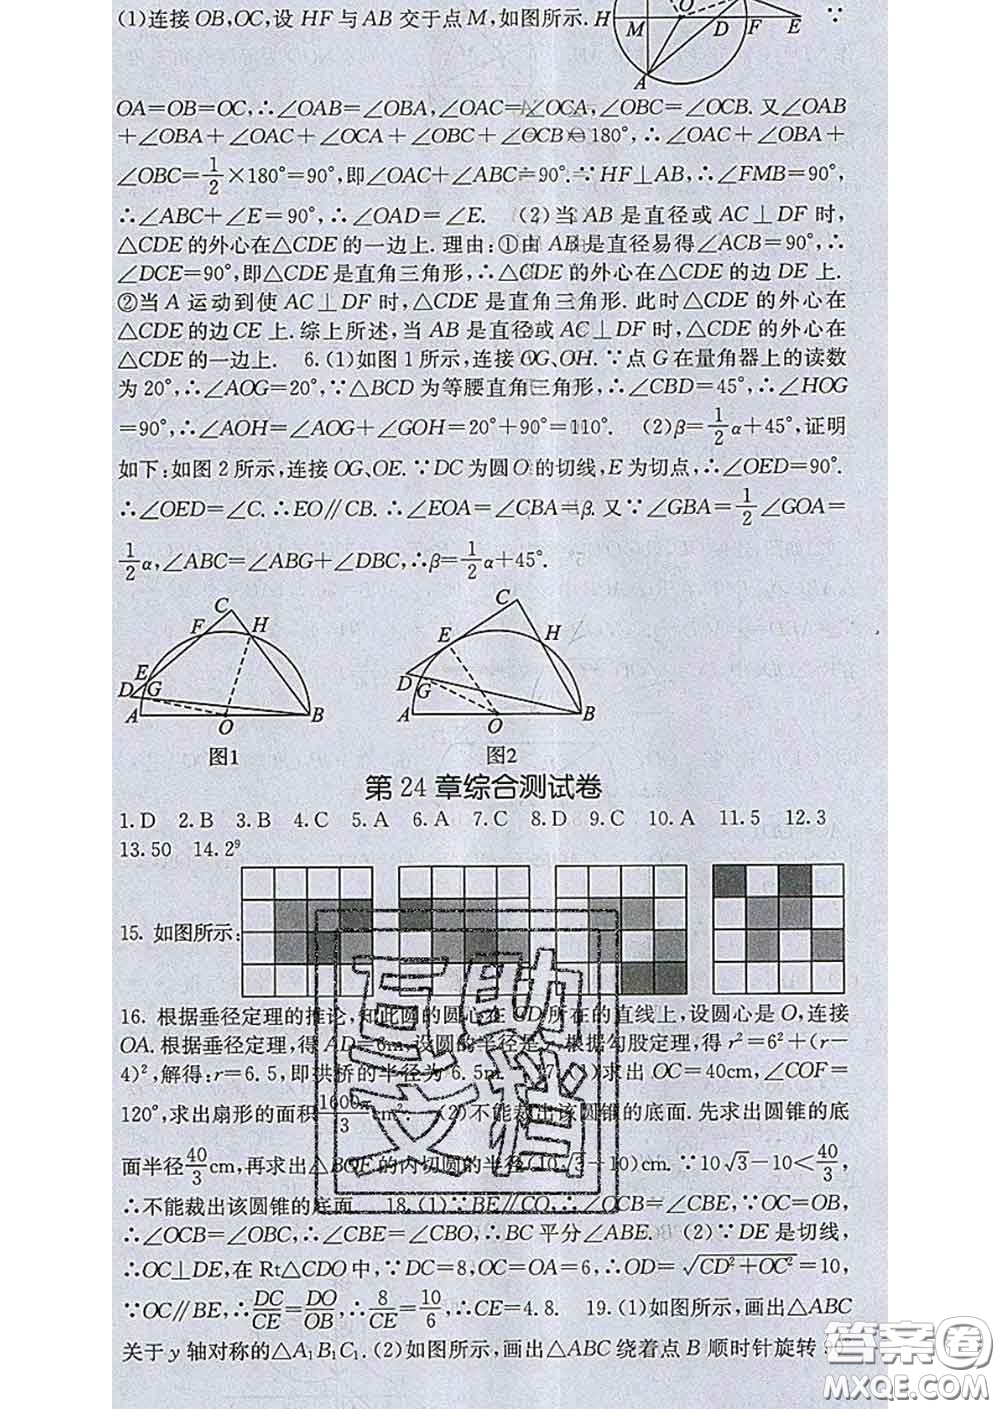 (1)连接OB,OC,设 HF 与 AB 交于点 M,如图所示. ∵
H M O D F E A
OA=OB=OC,∴∠OAB=∠OBA,∠OAC=∠OCA,∠OBC=∠OCB. 又∠OAB
+∠OBA+∠OAC+∠OCA+∠OBC+∠OCB=180°,∴∠OAC+∠OBA+
∠OBC=1/2×180°=90°,即∠OAC+∠ABC=90°.∵HF⊥AB,∴∠FMB=90°,
∴∠ABC+∠E=90°,∴∠OAD=∠E. (2)当 AB 是直径或 AC⊥DF 时,
△CDE的外心在△CDE的一边上.理由:①由 AB是直径易得∠ACB=90°,∴
∠DCE=90°,即△CDE是直角三角形,∴△CDE 的外心在△CDE 的边 DE 上.
②当 A 运动到使 AC⊥DF 时,△CDE 是直角三角形. 此时△CDE 的外心在
△CDE 的边CE 上.综上所述,当 AB 是直径或 AC⊥DF 时,△CDE 的外心在
△CDE 的一边上. 6.(1)如图1所示,连接 OG、OH. ∵点 G 在量角器上的读数
为20°,∴∠AOG=20°,∵△BCD为等腰直角三角形,∴∠CBD=45°,∴∠HOG
=90°,∴∠AOH=∠AOG+∠GOH=20°+90°=110°. (2)β=1/2α+45°,证明
如下:如图 2 所示,连接 OG、OE. ∵DC 为圆 O 的切线,E 为切点,∴∠OED=90°.
∴∠OED=∠C.∴EO∥CB.∴∠EOA=∠CBA=β. 又∵∠GBA=1/2∠GOA=
1/2α,∠ABC=∠ABG+∠DBC,∴β=1/2α+45°.
C F H E D G A O B
C E H D G A O B
图1 图2
第 24 章综合测试卷
1.D 2.B 3.B 4.C 5.A 6.A 7.C 8.D 9.C 10.A 11.5 12.3
13.50 14.2⁹
15. 如图所示:
16. 根据垂径定理的推论,知此圆的圆心在CD所在的直线上,设圆心是O,连接
OA.根据垂径定理,得 AD=6m.设圆的半径是r,根据勾股定理,得 r²=6²+(r-
4)²,解得:r=6.5,即拱桥的半径为 6.5m. 17.(1)求出 OC=40cm,∠COF=
120°,求出扇形的面积1600π/3cm². (2)不能裁出该圆锥的底面.先求出圆锥的底
面半径40/3cm,再求出△BOE的内切圆的半径(10√3-10)cm.∵10√3-10<40/3,
∴不能裁出该圆锥的底面. 18.(1)∵BE∥CO,∴∠OCB=∠CBE,∵OC=OB,
∴∠OCB=∠OBC,∴∠CBE=∠CBO,∴BC 平分∠ABE. (2)∵DE 是切线,
∴OC⊥DE,在Rt△CDO中,∵DC=8,OC=OA=6,∴OD=√(CD²+OC²)=10,
∵OC∥BE,∴DC/CE=DO/OB,∴8/CE=10/6,∴CE=4.8. 19.(1)如图所示,画出△ABC
关于 y 轴对称的△A₁B₁C₁.(2)如图所示,画出△ABC 绕着点 B 顺时针旋转
互助文档
答案圈
MXQE.COM